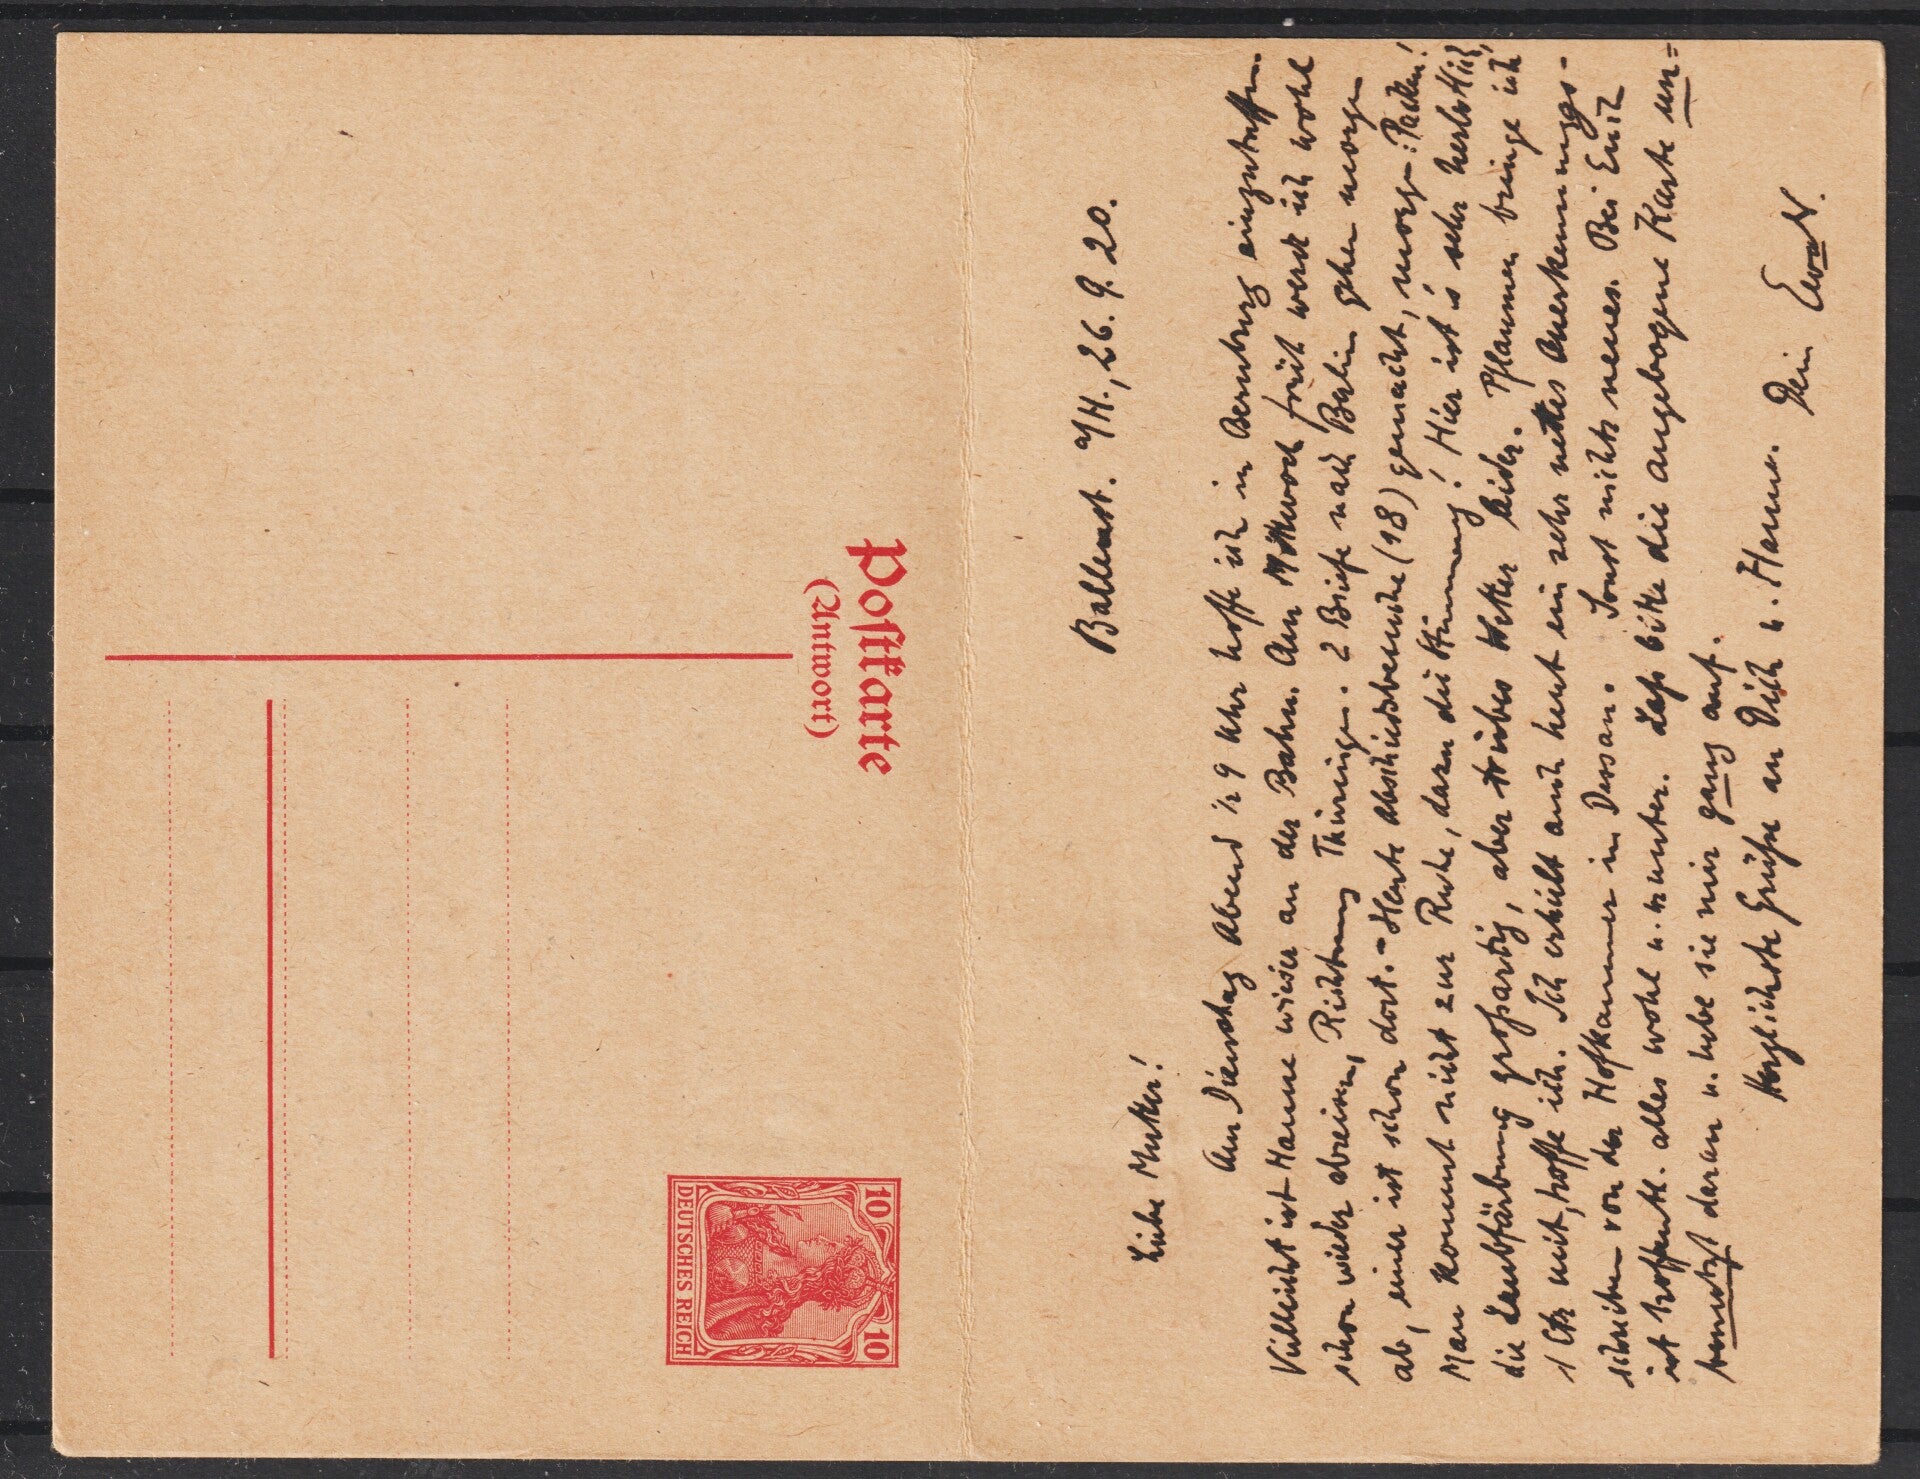 Postkarte
(Antwort)
10 10
DEUTSCHES REICH
Ballenst. a/H., 26. 9. 20.
Liebe Mutter!
Am Dienstag Abend ½ 9 Uhr hoffe ich in Bernburg einzutreffen.
Vielleicht ist Hanne wieder an der Bahn. Am Mittwoch früh werde ich wohl
schon wieder abreisen, Richtung Thüringen. 2 Briefe nach Berlin gehen morgen
ab, einer ist schon dort. – Heute Abschiedsbesuche (18) gemacht, morgen: Packen!
Man kommt nicht zur Ruhe, dazu die Stimmung! Hier ist's sehr herbstlich,
die Laubfärbung großartig, aber trübes Wetter leider. Pflaumen bringe ich
1 Ctr mit, hoffe ich. Ich erhielt auch heut ein sehr nettes Anerkennungs-
schreiben von der Hofkammer in Dessau. Sonst nichts neues. Bei Euch
ist hoffentl. alles wohl u. munter. Laß bitte die angebogene Karte un=
benutzt daran u. hebe sie mir ganz auf.
Herzlichste Grüße an Dich u. Hanne. Dein Ewald.